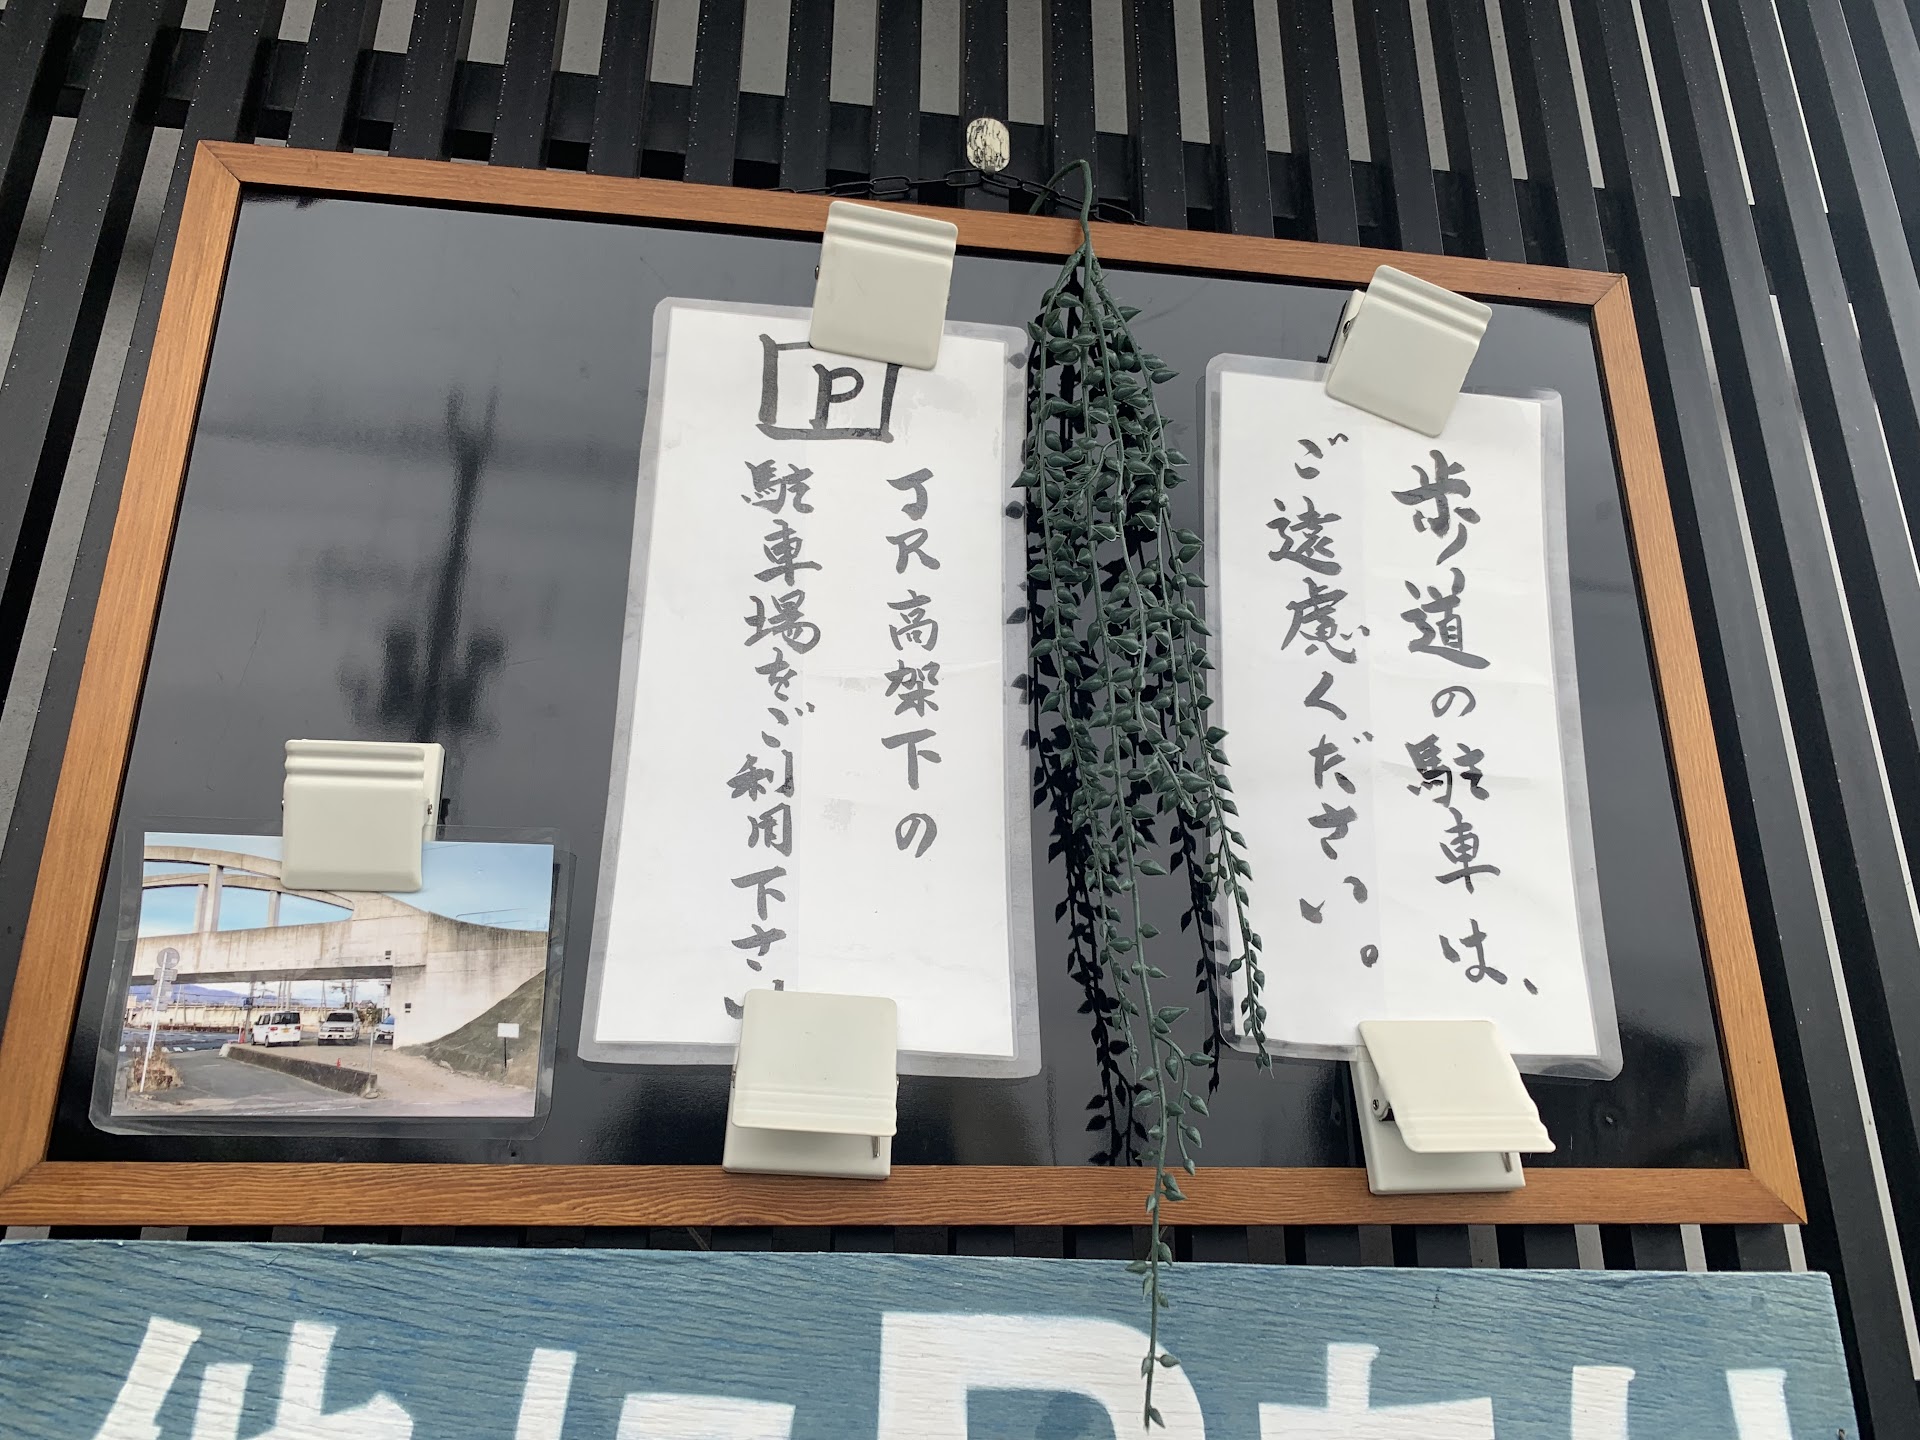 歩道の駐車は、
ご遠慮ください。
P
JR高架下の
駐車場をご利用下さい
他にPあり